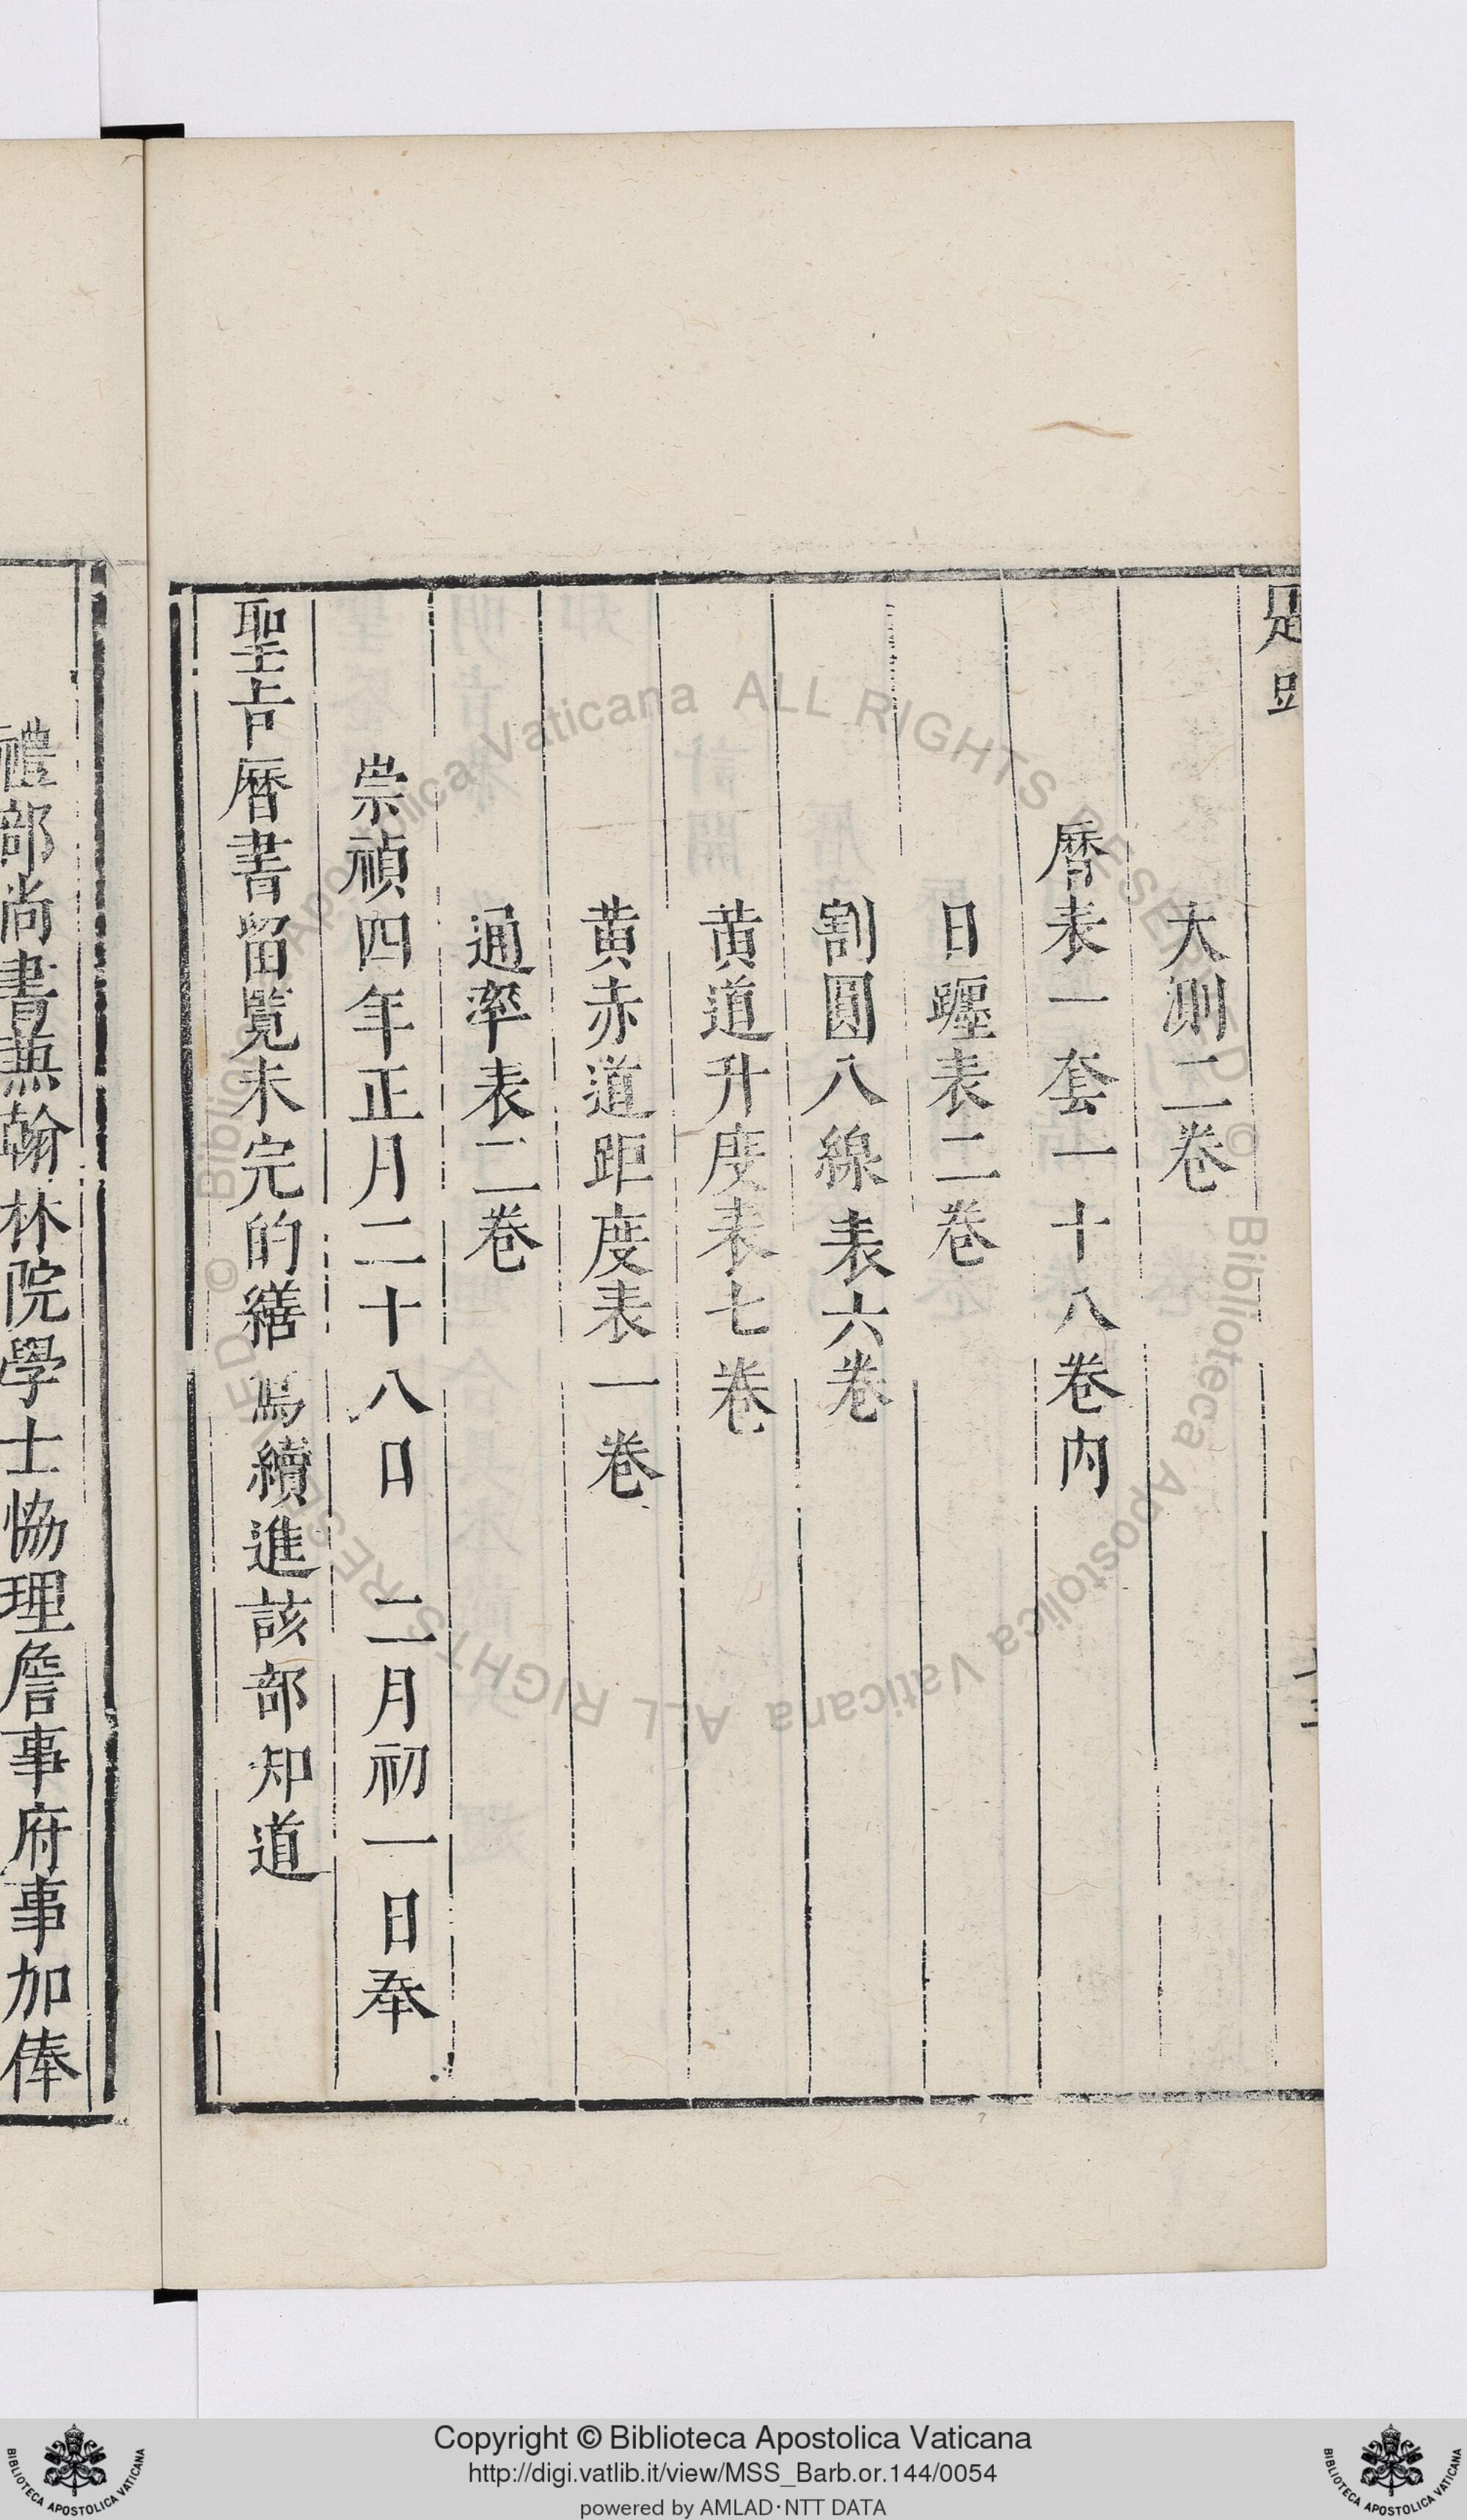 大測二卷
曆表一套一十八卷內
日躔表二卷
割圓八線表六卷
黄道升度表七卷
黄赤道距度表一卷
通率表二卷
崇禎四年正月二十八日 二月初一日奉
聖旨曆書留覧未完的繕寫續進該部知道
禮部尚書兼翰林院學士恊理詹事府事加俸
© Biblioteca Apostolica Vaticana ALL RIGHTS RESERVED © Biblioteca Apostolica Vaticana ALL RIGHTS RESERVED
Copyright © Biblioteca Apostolica Vaticana
http://digi.vatlib.it/view/MSS_Barb.or.144/0054
powered by AMLAD·NTT DATA
BIBLIOTECA APOSTOLICA VATICANA
BIBLIOTECA APOSTOLICA VATICANA